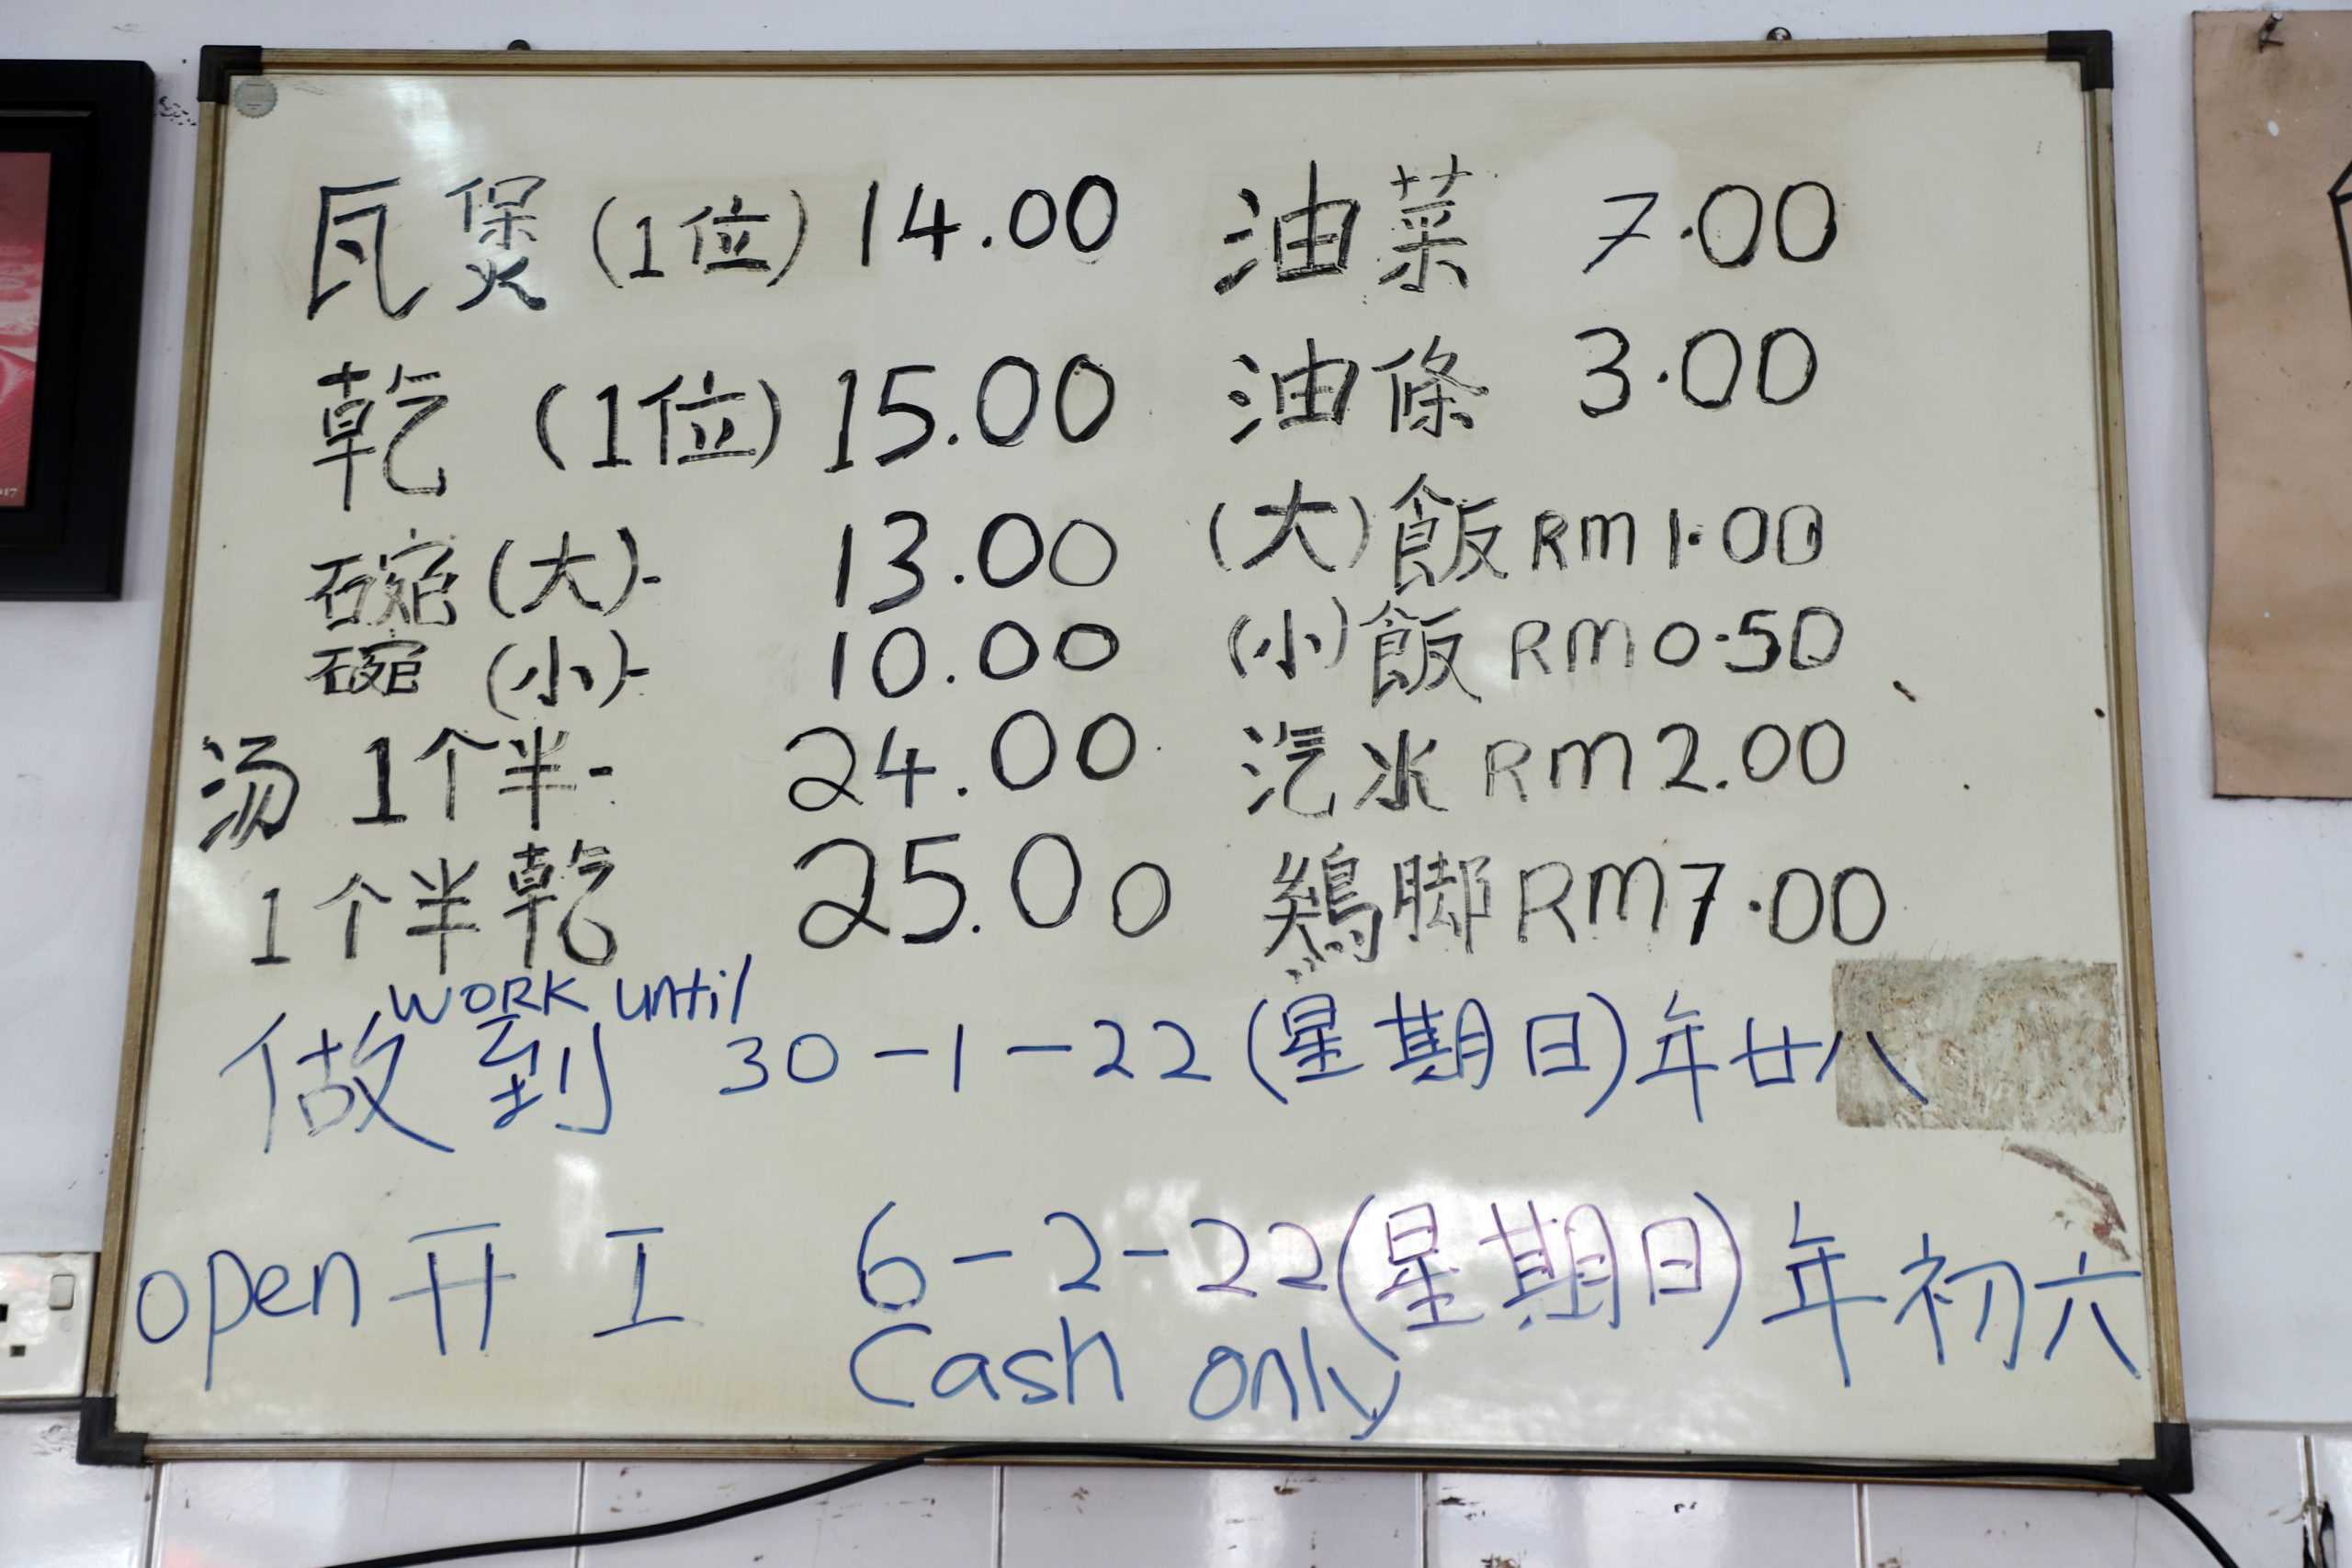 瓦煲 (1位) 14.00
乾 (1位) 15.00
碗 (大)- 13.00
碗 (小)- 10.00
汤 1个半- 24.00
1个半乾 25.00
油菜 7.00
油條 3.00
(大)飯 RM1.00
(小)飯 RM0.50
汽水 RM2.00
鷄脚 RM7.00
WORK until
做到 30-1-22 (星期日)年廿八
open 开工 6-2-22(星期日)年初六
Cash only